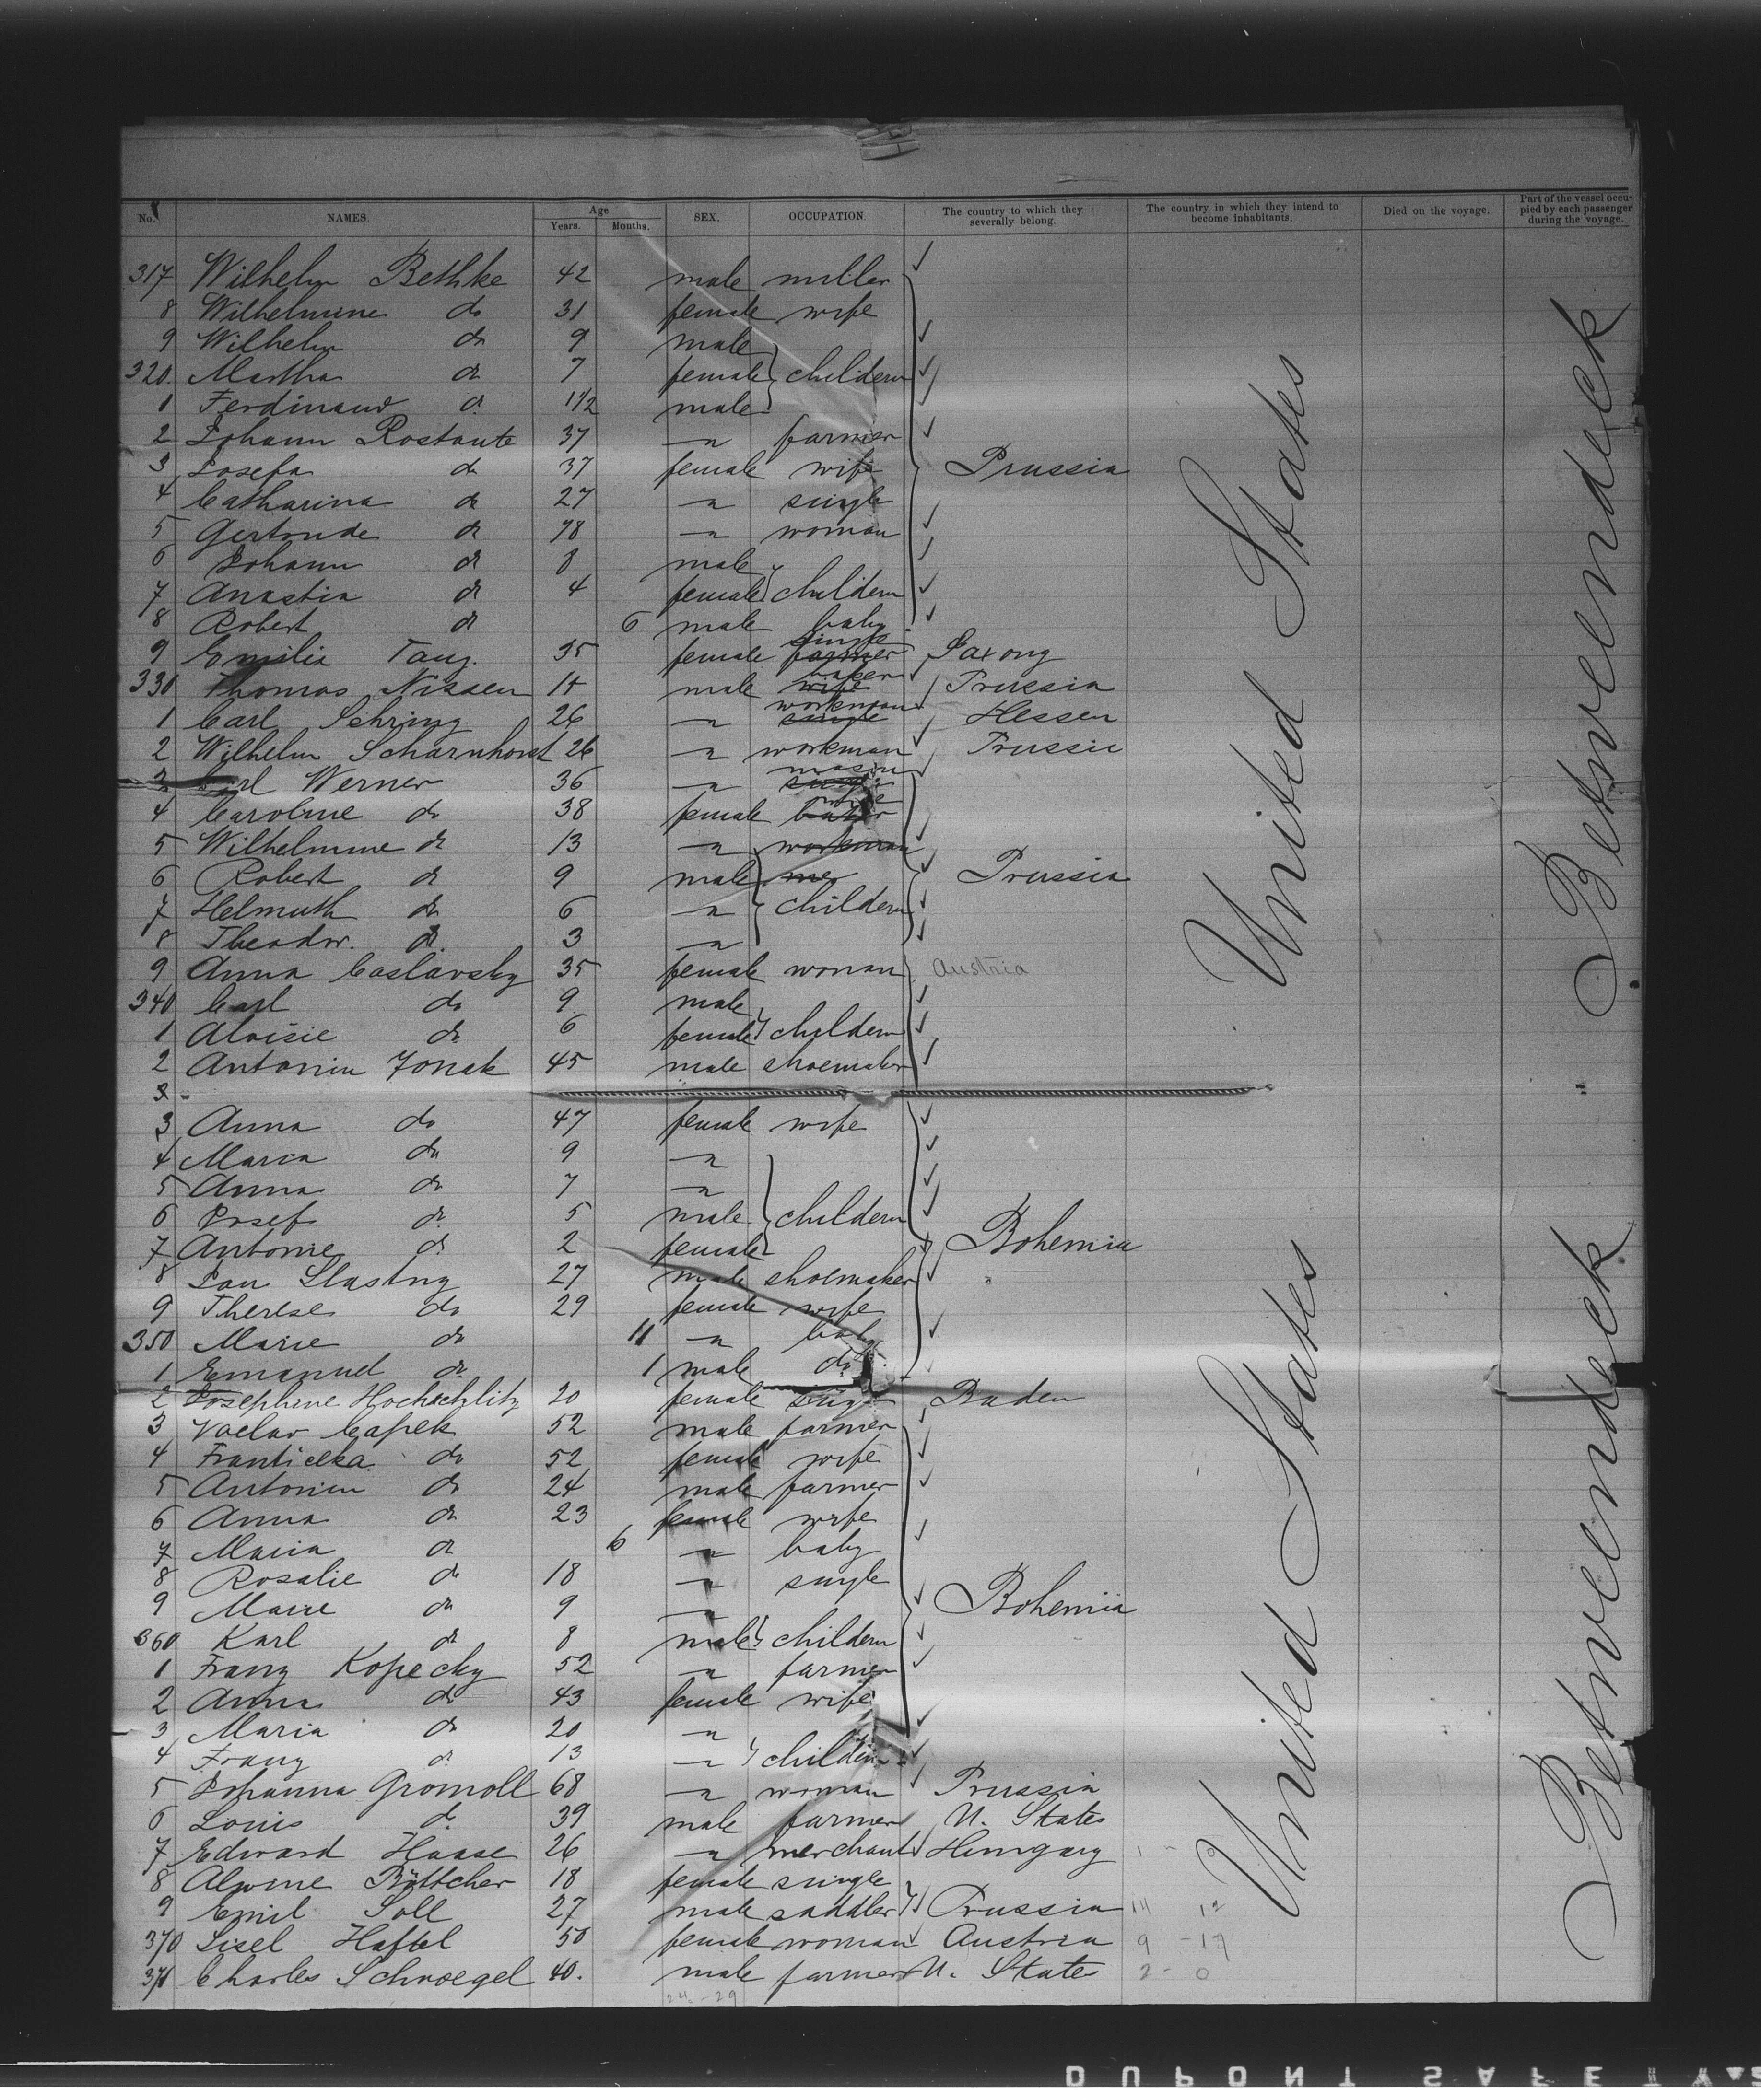 No. NAMES. Age Years. Months. SEX. OCCUPATION. The country to which they severally belong. The country in which they intend to become inhabitants. Died on the voyage. Part of the vessel occupied by each passenger during the voyage.
317 Wilhelm Bethke 42 male miller
8 Wilhelmine do 31 female wife
9 Wilhelm do 9 male
320. Martha do 7 female childern
1 Ferdinand do 1 1/2 male
2 Johann Rostante 37 — " farmer
3 Josefa do 37 female wife Prussia
4 Catharina do 27 — " single
5 Gertrude do 78 — " woman
6 Johann do 8 male
7 Anastia do 4 female childern
8 Robert do 6 male baby
9 Emilie Tang. 35 female single farmer Saxony
330 Thomas Nissen 14 male baker wife Prussia
1 Carl Sehring 26 — " workman single Hessen
2 Wilhelm Scharnhorst 26 — " workman Prussia
3 Carl Werner 36 — " mason single
4 Caroline do 38 female wife baker
5 Wilhelmine do 13 — " workman
6 Robert do 9 male Prussia
7 Helmuth do 6 — " childern
8 Theodor. do. 3 — "
9 Anna Caslavsky 35 female woman Austria
340 Carl do 9 male
1 Aloisie do 6 female childern
2 Antonin Jonak 45 male shoemaker
3
3 Anna do 47 female wife
4 Maria do 9 — "
5 Anna do 7 — "
6 Josef do 5 male childern
7 Antonie do 2 female Bohemia
8 Jan Slastny 27 male shoemaker
9 Therese do 29 female wife
350 Marie do 11 — " baby
1 Emanuel do 1 male do
2 Josephine Hochschlitz 20 female single Baden
3 Vaclav Capek 52 male farmer
4 Franticka do 52 female wife
5 Antonin do 24 male farmer
6 Anna do 23 female wife
7 Maria do 6 — " baby
8 Rosalie do 18 — " single
9 Marie do 9 — " Bohemia
360 Karl do 8 male childern
1 Franz Kopecky 52 — " farmer
2 Anna do 43 female wife
3 Maria do 20 — "
4 Franz do 13 — " childern
5 Johanna Gromoll 68 — " woman Prussia
6 Louis do 39 male farmer U. States
7 Edward Haase 26 — " merchant Hungary
8 Alwine Böttcher 18 female single
9 Emil Soll 27 male saddler Prussia
370 Lisel Haftel 50 female woman Austria 9 - 17
371 Charles Schroegel 40. male farmer U. States 2 - 0
24 - 29
United States
United States
Betweendeck
Betweendeck
DUPONT SAFETY